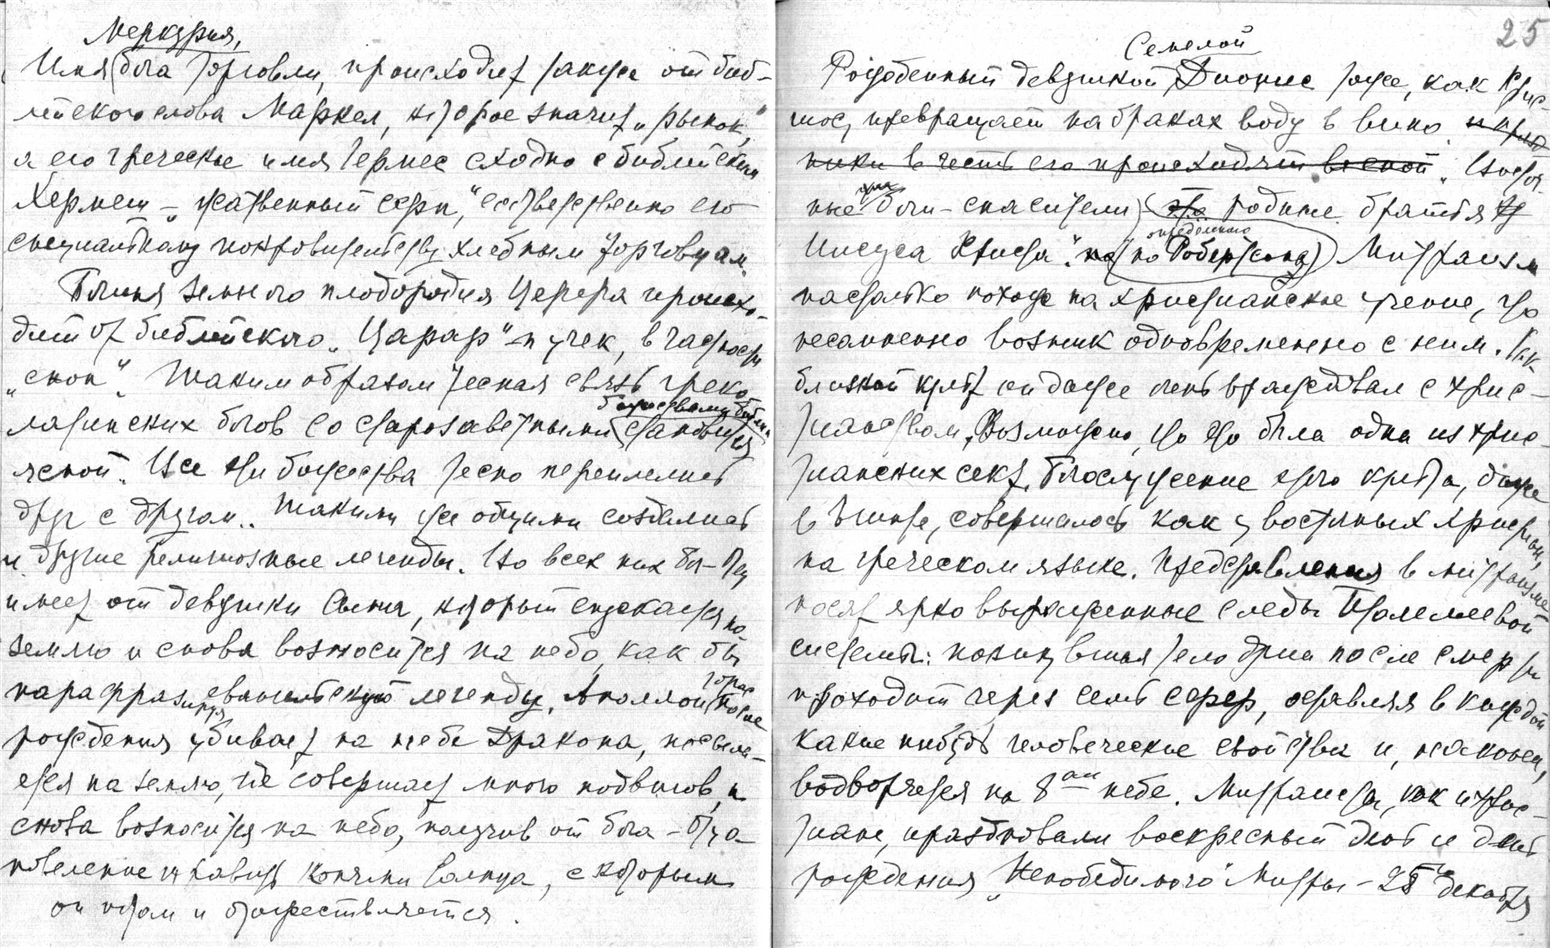 Меркурия,
Имя бога торговли, происходит также от биб-
лейского слова Маркел, которое значит „рынок“,
а его греческое имя Гермес сходно с библейским
Хермеш – „жатвенный серп“, соответственно его
специальному покровительству хлебным торговцам.
Богиня земного плодородия Церера происхо-
дит от библейского „Царар“ – пучек, в частности
„сноп“. Таким образом тесная связь греко
латинских богов со старозаветными становится
божествами Библии
ясной. Все эти божества тесно переплелись
друг с другом. Такими же общими создались
и другие религиозные легенды. Во всех них бог-Отец
имеет от девушки Сына, который спускается на
землю и снова возносится на небо, как бы
парафразируя евангельскую легенду. Аполлон тотчас после
рождения убивает на небе Дракона, поселя-
ется на землю, где совершает много подвигов, и
снова возносится на небо, получив от бога-отца
повеление управлять конями солнца, с которым
он потом и отожествляется.
25
Семелой
Рожденный девушкой Дионис тоже, как Хрис-
тос, превращает на браках воду в вино и празд-
ники в честь его происходят весной.
ные боги-спасители – это родные братья
Иисуса Христа“. (по определению Робертсона) Митраизм
настолько похож на христианское учение, что
несомненно возник одновременно с ним. Как
близкий культ он даже очень враждовал с хрис-
тианством. Возможно, что это была одна из хрис-
тианских сект. Богослужение этого культа, даже
в Риме, совершалось как у восточных христиан,
на греческом языке. Представления в митраизме
носят ярко выраженные следы Птолемеевой
системы: покинувшая тело душа после смерти
проходит через семь сфер, оставляя в каждой
какие нибудь человеческие свойства и, наконец,
водворяется на 8ом небе. Митраисты, как и хрис-
тиане, праздновали воскресный день и день
рождения „Непобедимого“ Митры – 25го декабря